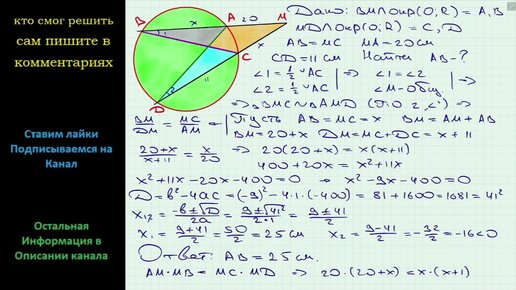 кто смог решить
сам пишите в
комментариях
Ставим лайки
Подписываемся на
Канал
Остальная
Информация в
Описании канала
B
x
A
20
M
x
C
1
2
11
D
Дано: BM∩Окр(O,R) = A,B
MD∩Окр(O,R) = C,D
AB=MC MA=20см
CD=11см Найти AB-?
∠1=½ ◡AC
∠2=½ ◡AC | ⇒ ∠1=∠2
∠M-Общ | ⇒
⇒ △BMC∾△AMD (По 2 ∠)⇒
BM/DM = MC/AM ⇒ | Пусть AB=MC=x BM=AM+AB
BM=20+x DM=MC+DC=x+11
20+x/x+11 = x/20 ⇒ 20(20+x)=x(x+11)
400+20x=x²+11x
x²+11x-20x-400=0 ⇒ x²-9x-400=0
D=b²-4ac=(-9)²-4·1·(-400)=81+1600=1681=41²
x₁,₂=-b±√D/2a=9±√41²/2·1=9±41/2
x₁=9+41/2=50/2=25см x₂=9-41/2=-32/2=-16<0
Ответ: AB=25см.
AM·MB=MC·MD ⇒ 20·(20+x)=x·(x+11)